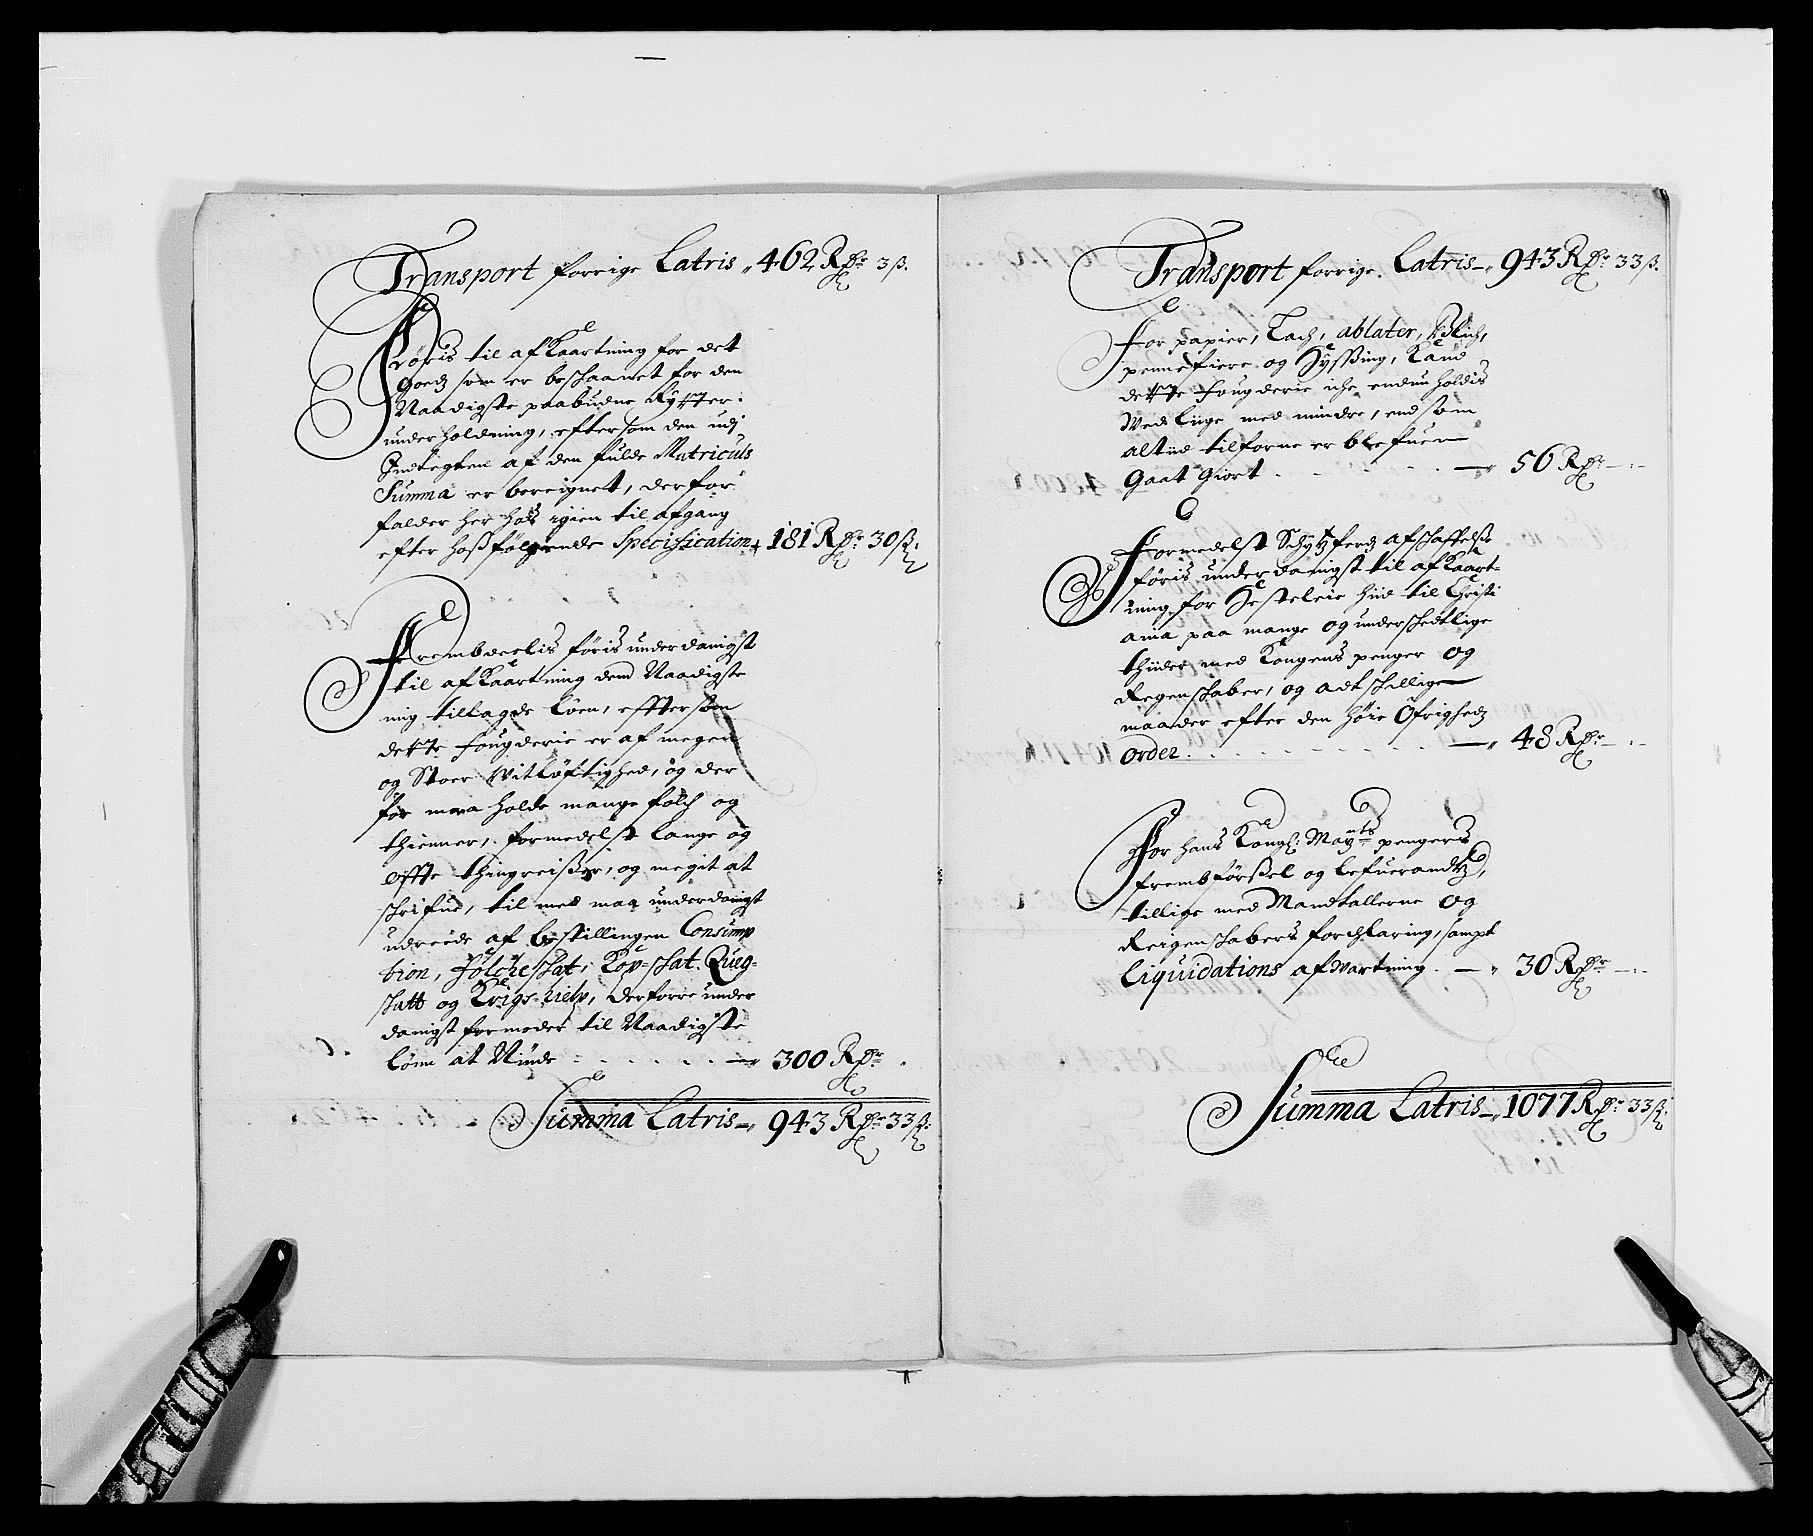 Transport forrige Latris „ 462 Rdr 3 ß.
Føris til afKaartning for det
Goeds som er beschaanet for den
Naadigste paabudne Rytter-
underholdning, eftersom den udj
Indtegten af den fulde Matriculs
Summa er bereignet, derfor
falder her hoß igien til afgang
efter hoßfølgende Specification „ 181 Rdr 30 ß:
Frembdeelis føris underdanigst
til afKaartning dend Naadigste
mig tillagde Løen, effterson
dette fougderie er af megen
og Stoer Vitløftighed, og der
før maa holde mange folch og
thienner, formedelst lange og
offte thingreißer, og megit at
schrifue, til med maa underdanigst
udreede af bestillingen Consump
tion, Folcheschat, Kop-schat. Queg-
schatt og Krigs-hielp, derforre under
danigst formoder til Naadigste
Lønn at Niude - - - - - 300 Rdr
Summa Latris „ 943 Rdr 33 ß:
Transport forrige Latris „ 943 Rdr 33 ß.
For papier, Lach, ablater, Blech,
pennefiere og Hyssing, Kand
dette fougderie iche endnu holdis
Wedliige med mindre, end som
altiid tilforne er blefuen
Gaat Giort - - - 56 Rdr -:-
Formedelst Schytzferds afschaffelse
føris underdanigst til afKaart-
ning for Hesteleie hiid til Christi
ania paa mange og underschedtlige
thiider med Kongens penger og
Regenschaber, og adtschillige
maader efter den høie Öfrigheds
order. - - - - 48 Rdr -:-
For hans Kongl: Mayts pengers
frembførßel og Lefuerandtz,
tillige med Mandtallerne og
Reigenschabers forchlaring, sampt
Liquidations afwartning. „ 30 Rdr -:-
Summa Latris „ 1077 Rdr 33 ß: